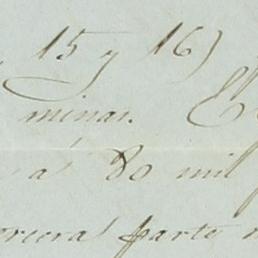 15 y 16)
minar. El
a 80 mil
tercera parte